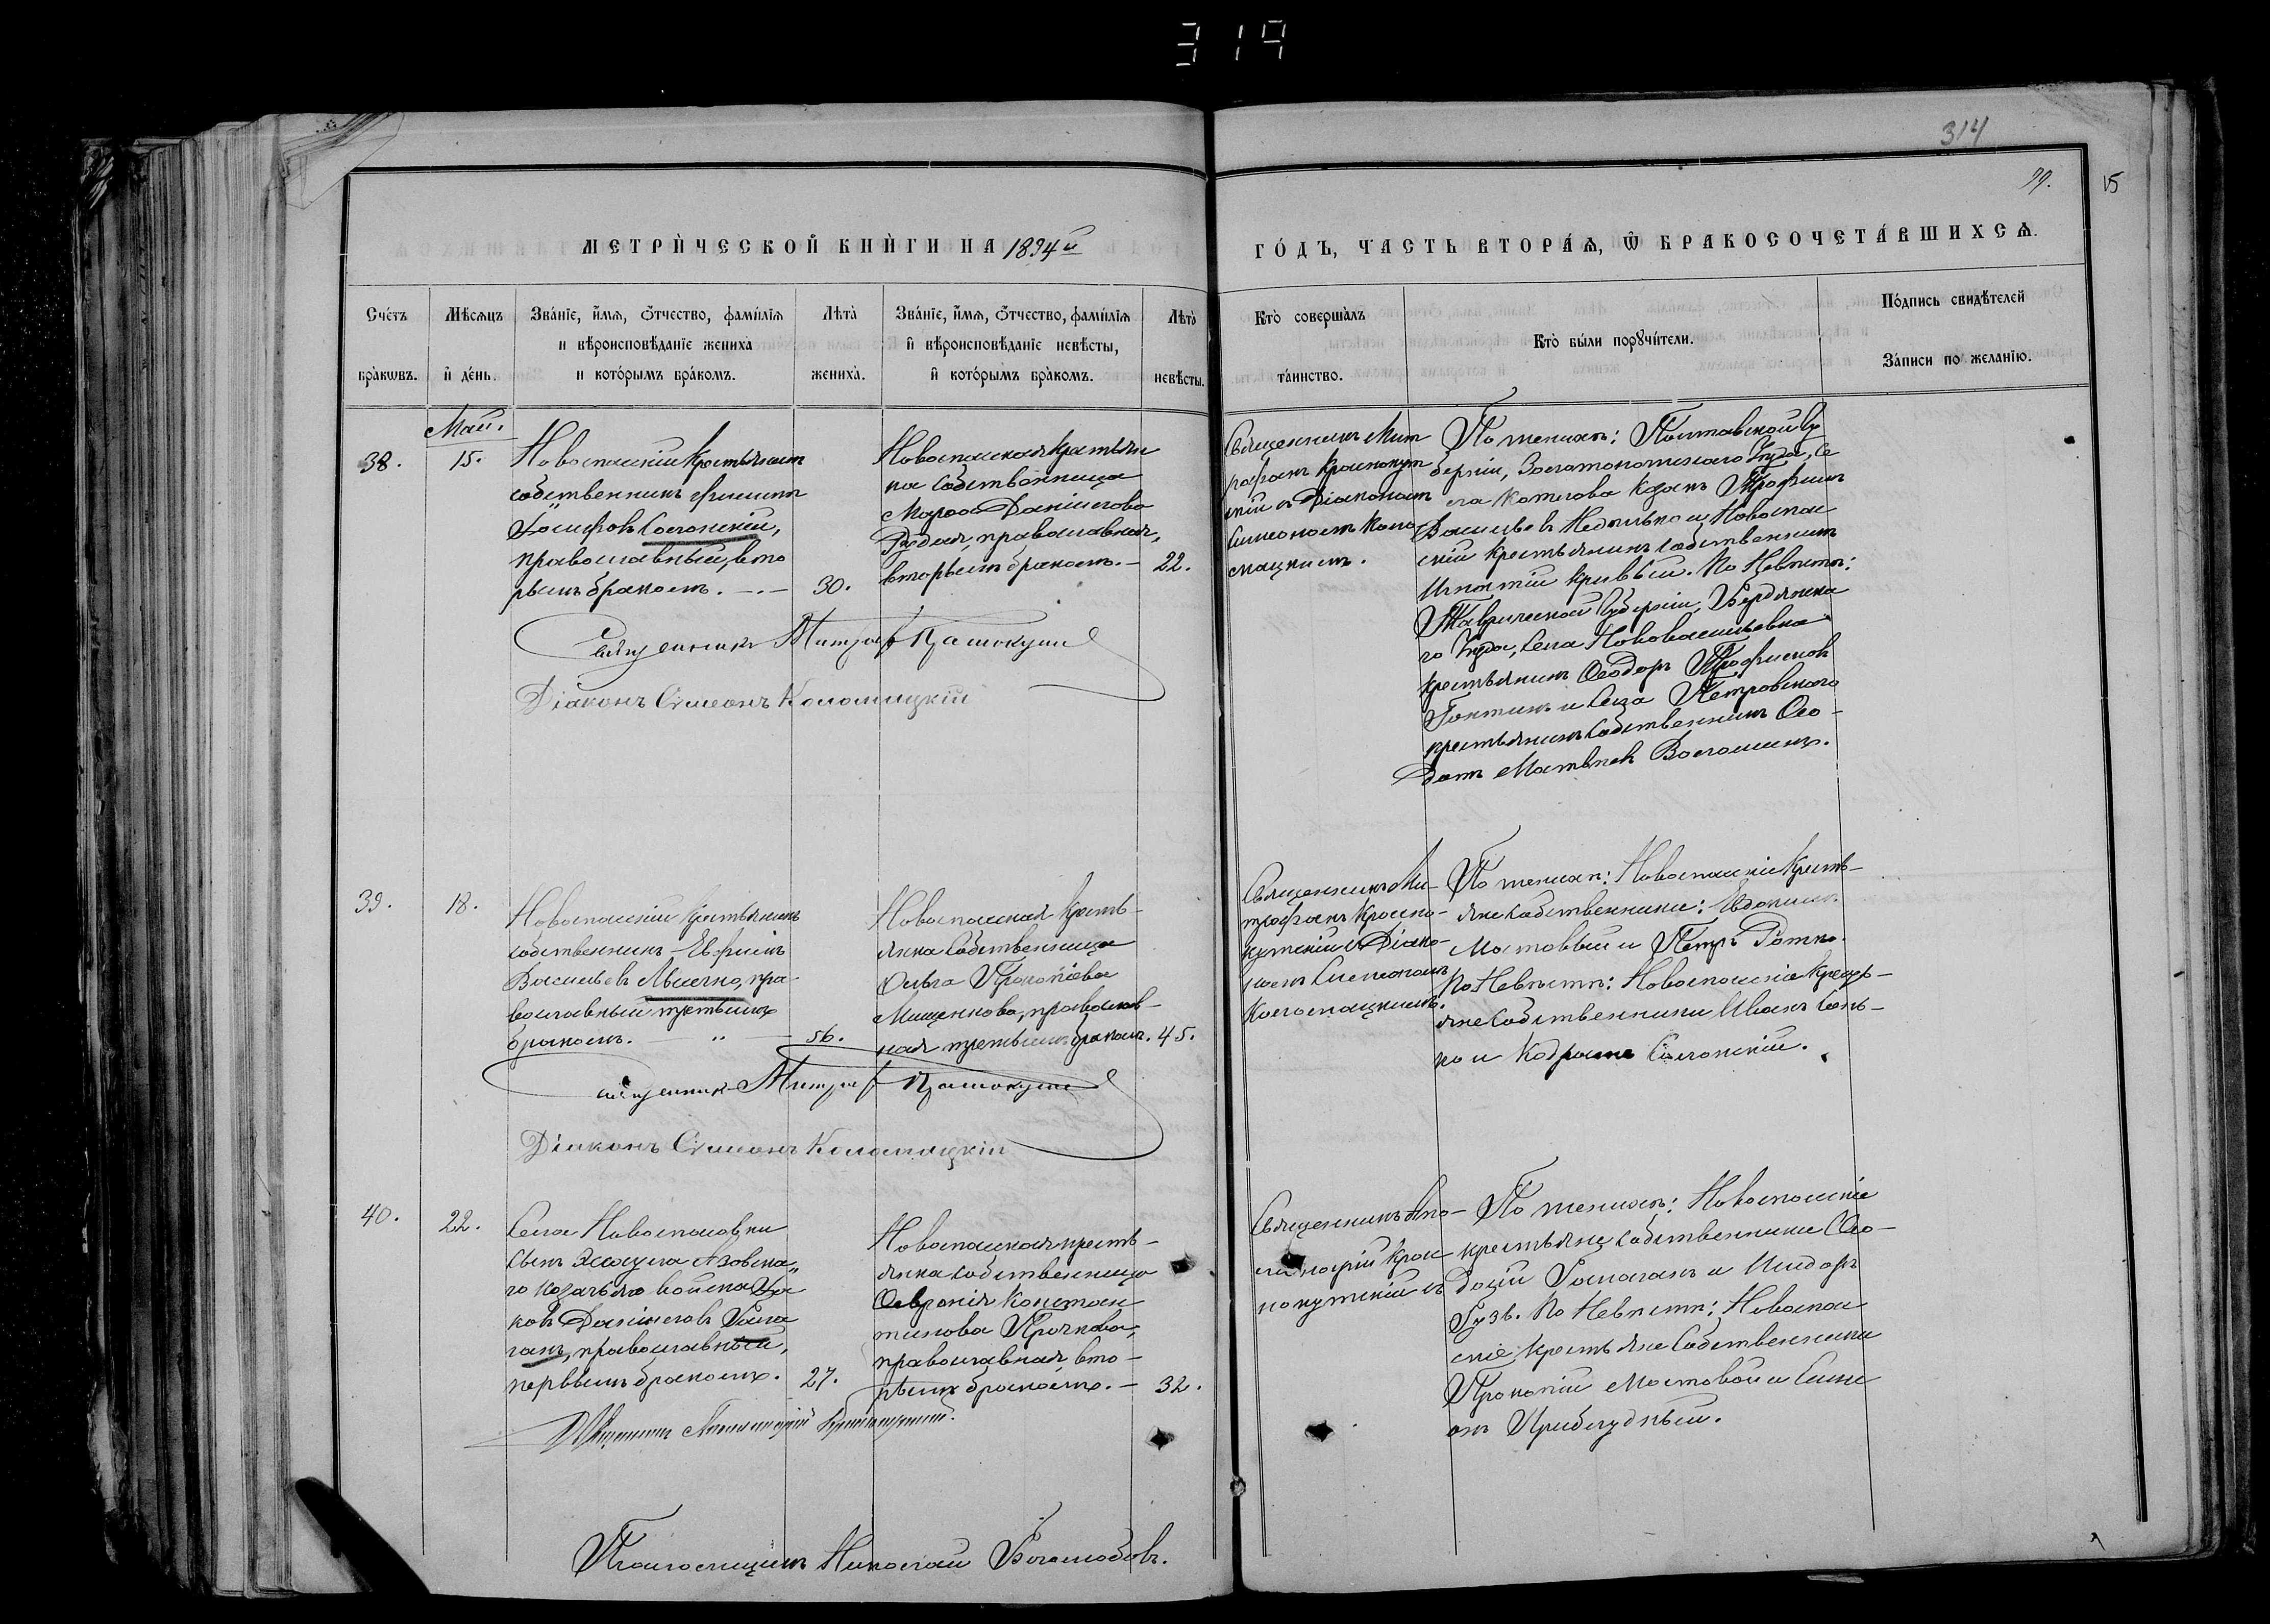 319
314
99.
15
МЕТРИ́ЧЕСКОЙ КНИ́ГИ НА 1894й
ГО́ДЪ, ЧАСТЬ ВТОРА́Ѧ, Ѽ БРАКОСОЧЕТА́ВШИХСѦ.
Сче́тъ бра́кѡвъ.
Мѣ́сѧцъ и де́нь.
Зва́нїе, и́мѧ, ѻ҆́тчество, фами́лїѧ
и вѣроисповѣ́данїе жениха̀
и кото́рымъ бра́комъ.
Лѣ́та жениха̀.
Зва́нїе, и́мѧ, ѻ҆́тчество, фами́лїѧ
и вѣроисповѣ́данїе невѣ́сты,
и кото́рымъ бра́комъ.
Лѣ́та невѣ́сты.
Кто̀ соверша́лъ
та́инство.
Кто̀ бы́ли порꙋчи́тели.
По́дпись свидѣ́телей
За́писи по жела́нїю.
Май.
38.
15.
Новоспаскій Крестьянинъ
собственникъ Филиппъ
Іосифовъ Солонскій,
православный, вто
рымъ бракомъ. —.—
30.
Новоспаская Крестьян
ка собственница
Марфа Даніилова
православная,
вторымъ бракомъ. —
22.
Священникъ Мит
рофанъ Краснокут
скій съ Діакономъ
Симеономъ Коло
мацкимъ.
По женихѣ: Полтавской Гу
берніи, Золотоношскаго Уѣзда, Се
ла Козакъ Трофимъ
Васильевъ и Новоспас
скій крестьянинъ собственникъ
Игнатій Кривый. По Невѣстѣ:
Таврической Губерніи, Бердянска
го Уѣзда, Села Нововасильевка
крестьянинъ Ѳеодоръ Трофимовъ
и Села Петровскаго
крестьянинъ собственникъ Ѳео-
дотъ Матвѣевъ Волошинъ.
Священникъ Митроф Краснокутск
Діаконъ Симеонъ Коломацкій
39.
18.
Новоспаскій Крестьянинъ
собственникъ Ефимъ
Васильевъ пра-
вославный третьимъ
бракомъ. — " —
56.
Новоспаская Кресть-
янка собственница
Ольга Прокопіева
Мищенкова, православ-
ная третьимъ бракомъ.
45.
Священникъ Ми-
трофанъ Красно-
кутскій съ Діако-
номъ Симеономъ
Коломацкимъ.
По женихѣ: Новоспаскіе Кресть-
яне собственники: Евдокимъ
Мостовый и Петръ
По Невѣстѣ: Новоспаскіе Кресть-
яне собственники Иванъ
ко и Солонскій.
Священник Митроф Краснокутск
Діаконъ Симеонъ Коломацкій
40.
22.
Села Новоспасовки
сынъ Азовска-
го козачьяго войска Іа-
ковъ Даніиловъ
православный,
первымъ бракомъ.
27.
Новоспаская кресть-
янка собственница
Ѳевронія Констан
тинова
православная, вто-
рымъ бракомъ. —
32.
Священникъ Апо-
линарій Крас
нокутскій съ
По женихѣ: Новоспаскіе
крестьяне собственники Ѳео-
досій и Исидоръ
По Невѣстѣ: Новоспас
скіе крестьяне собственники
Прокопій Мостовой и Симе
онъ Приблудный.
Священникъ Аполлинарій Краснокутскій.
Псаломщикъ Николай Боголюбовъ.